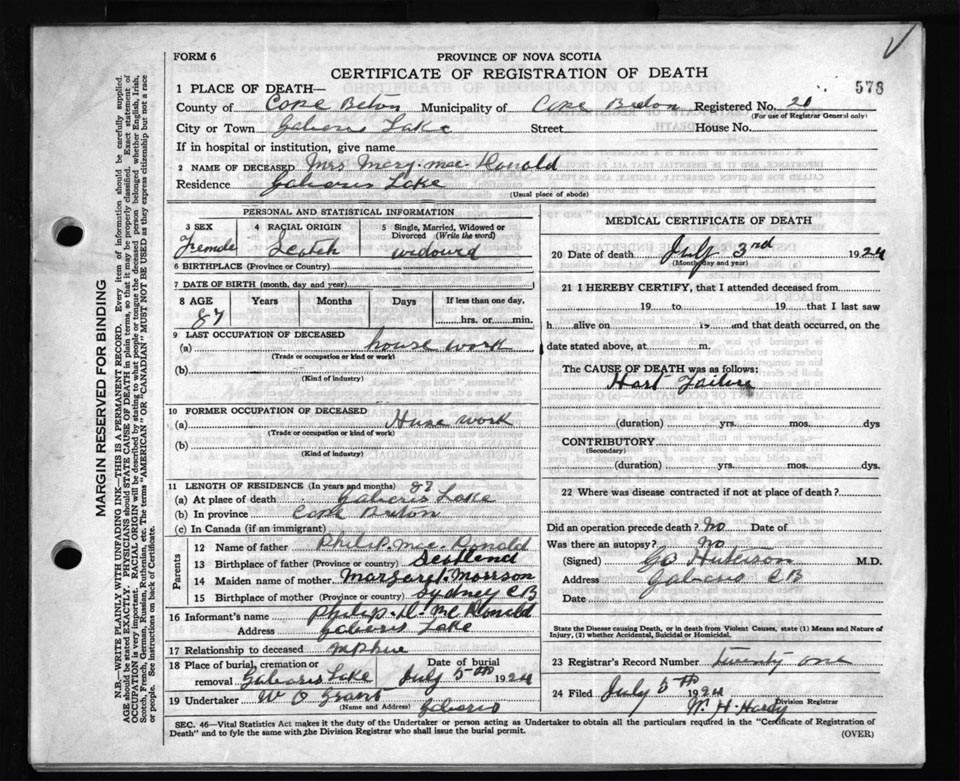 FORM 6
PROVINCE OF NOVA SCOTIA
CERTIFICATE OF REGISTRATION OF DEATH
578
1 PLACE OF DEATH—
County of Cape Beton Municipality of Cape Breton Registered No. 20
(For use of Registrar General only)
City or Town Gaberis Lake Street House No.
If in hospital or institution, give name
2 NAME OF DECEASED Mrs Mary. mac. Donald
Residence Gabaris Lake
(Usual place of abode)
PERSONAL AND STATISTICAL INFORMATION
3 SEX 4 RACIAL ORIGIN 5 Single, Married, Widowed or Divorced (Write the word)
Fremale Scotch widowed
6 BIRTHPLACE (Province or Country)
7 DATE OF BIRTH (month, day and year)
8 AGE Years Months Days If less than one day,
87 hrs. or min.
9 LAST OCCUPATION OF DECEASED
(a) house work
(Trade or occupation or kind or work)
(b)
(Kind of industry)
10 FORMER OCCUPATION OF DECEASED
(a) House work
(Trade or occupation or kind of work)
(b)
(Kind of industry)
11 LENGTH OF RESIDENCE (In years and months) 87
(a) At place of death Gaberis Lake
(b) In province Cape Breton
(c) In Canada (if an immigrant)
Parents
12 Name of father Philip. mac. Donald
13 Birthplace of father (Province or country) Scotland
14 Maiden name of mother Margaret. Morrson
15 Birthplace of mother (Province or country) Sydney C B
16 Informant's name Philip. D. Mc Donald
Address Gaberis Lake
17 Relationship to deceased nephue
18 Place of burial, cremation or removal Gabaris Lake Date of burial July 5th 1924
19 Undertaker W O Grant Gabaris
(Name and Address)
MEDICAL CERTIFICATE OF DEATH
20 Date of death July 3rd 1924
(Month, day and year)
21 I HEREBY CERTIFY, that I attended deceased from
19 to 19 that I last saw
h alive on 19 and that death occurred, on the
date stated above, at m.
The CAUSE OF DEATH was as follows:
Hart Failure
(duration) yrs. mos. dys
CONTRIBUTORY
(Secondary)
(duration) yrs. mos. dys.
22 Where was disease contracted if not at place of death?
Did an operation precede death? No Date of
Was there an autopsy? No
(Signed) M.D.
Address Gabaris C B
Date
State the Disease causing Death, or in death from Violent Causes, state (1) Means and Nature of
Injury, (2) whether Accidental, Suicidal or Homicidal.
23 Registrar's Record Number twenty one
24 Filed July 5th 1924
W. H. Hardy
Division Registrar
SEC. 46—Vital Statistics Act makes it the duty of the Undertaker or person acting as Undertaker to obtain all the particulars required in the "Certificate of Registration of
Death" and to fyle the same with the Division Registrar who shall issue the burial permit.
(OVER)
MARGIN RESERVED FOR BINDING
N.B.—WRITE PLAINLY WITH UNFADING INK—THIS IS A PERMANENT RECORD. Every item of information should be carefully supplied.
AGE should be stated EXACTLY. PHYSICIANS should STATE CAUSE OF DEATH in plain terms, so that it may be properly classified. Exact statement of
OCCUPATION is very important. RACIAL ORIGIN will be described by stating to what people or tongue the deceased person belonged whether English, Irish,
Scotch, French, German, Russian, Ruthenian, etc. The terms "AMERICAN" OR "CANADIAN" MUST NOT BE USED as they express citizenship but not a race
or people. See instructions on back of Certificate.